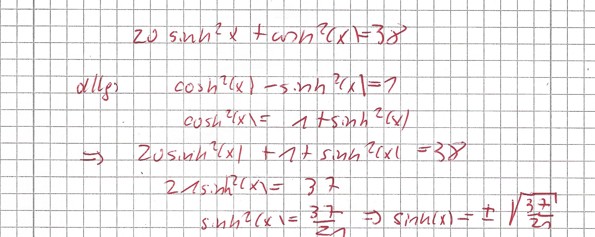 20 sinh²x + cosh²(x) = 38
allg: cosh²(x) - sinh²(x) = 1
cosh²(x) = 1 + sinh²(x)
⇒ 20 sinh²(x) + 1 + sinh²(x) = 38
21 sinh²(x) = 37
sinh²(x) = 37/21 ⇒ sinh(x) = ± √(37/21)